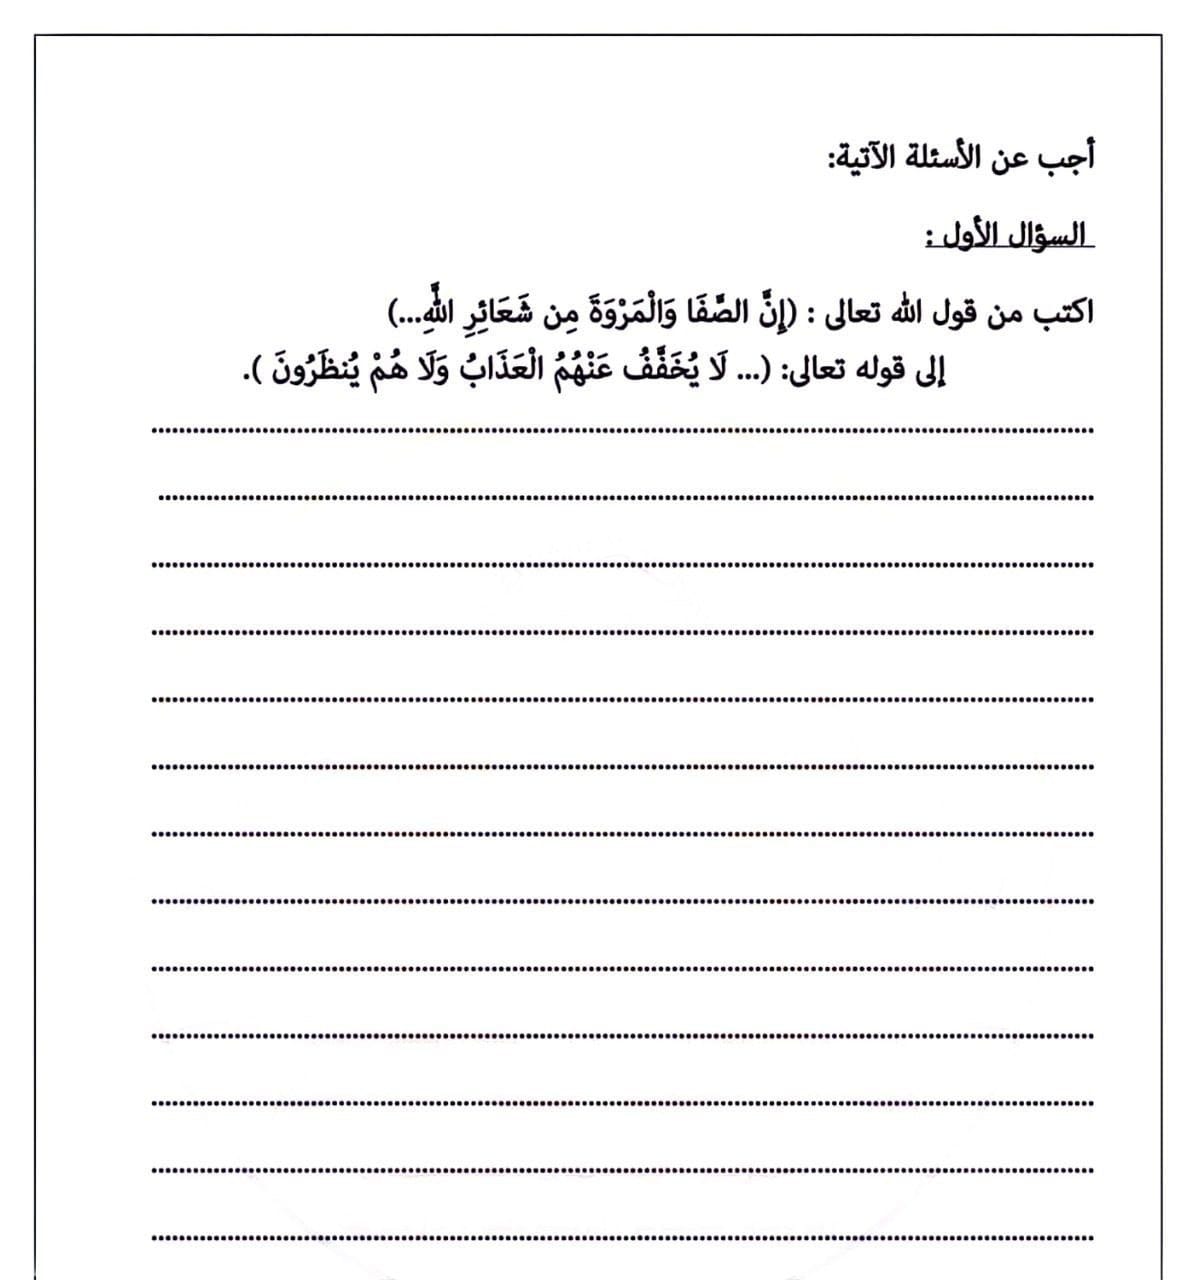 أجب عن الأسئلة الآتية:
السؤال الأول :
اكتب من قول الله تعالى : (إِنَّ الصَّفَا وَالْمَرْوَةَ مِن شَعَائِرِ اللَّهِ...)
إلى قوله تعالى: (... لَا يُخَفَّفُ عَنْهُمُ الْعَذَابُ وَلَا هُمْ يُنظَرُونَ ).